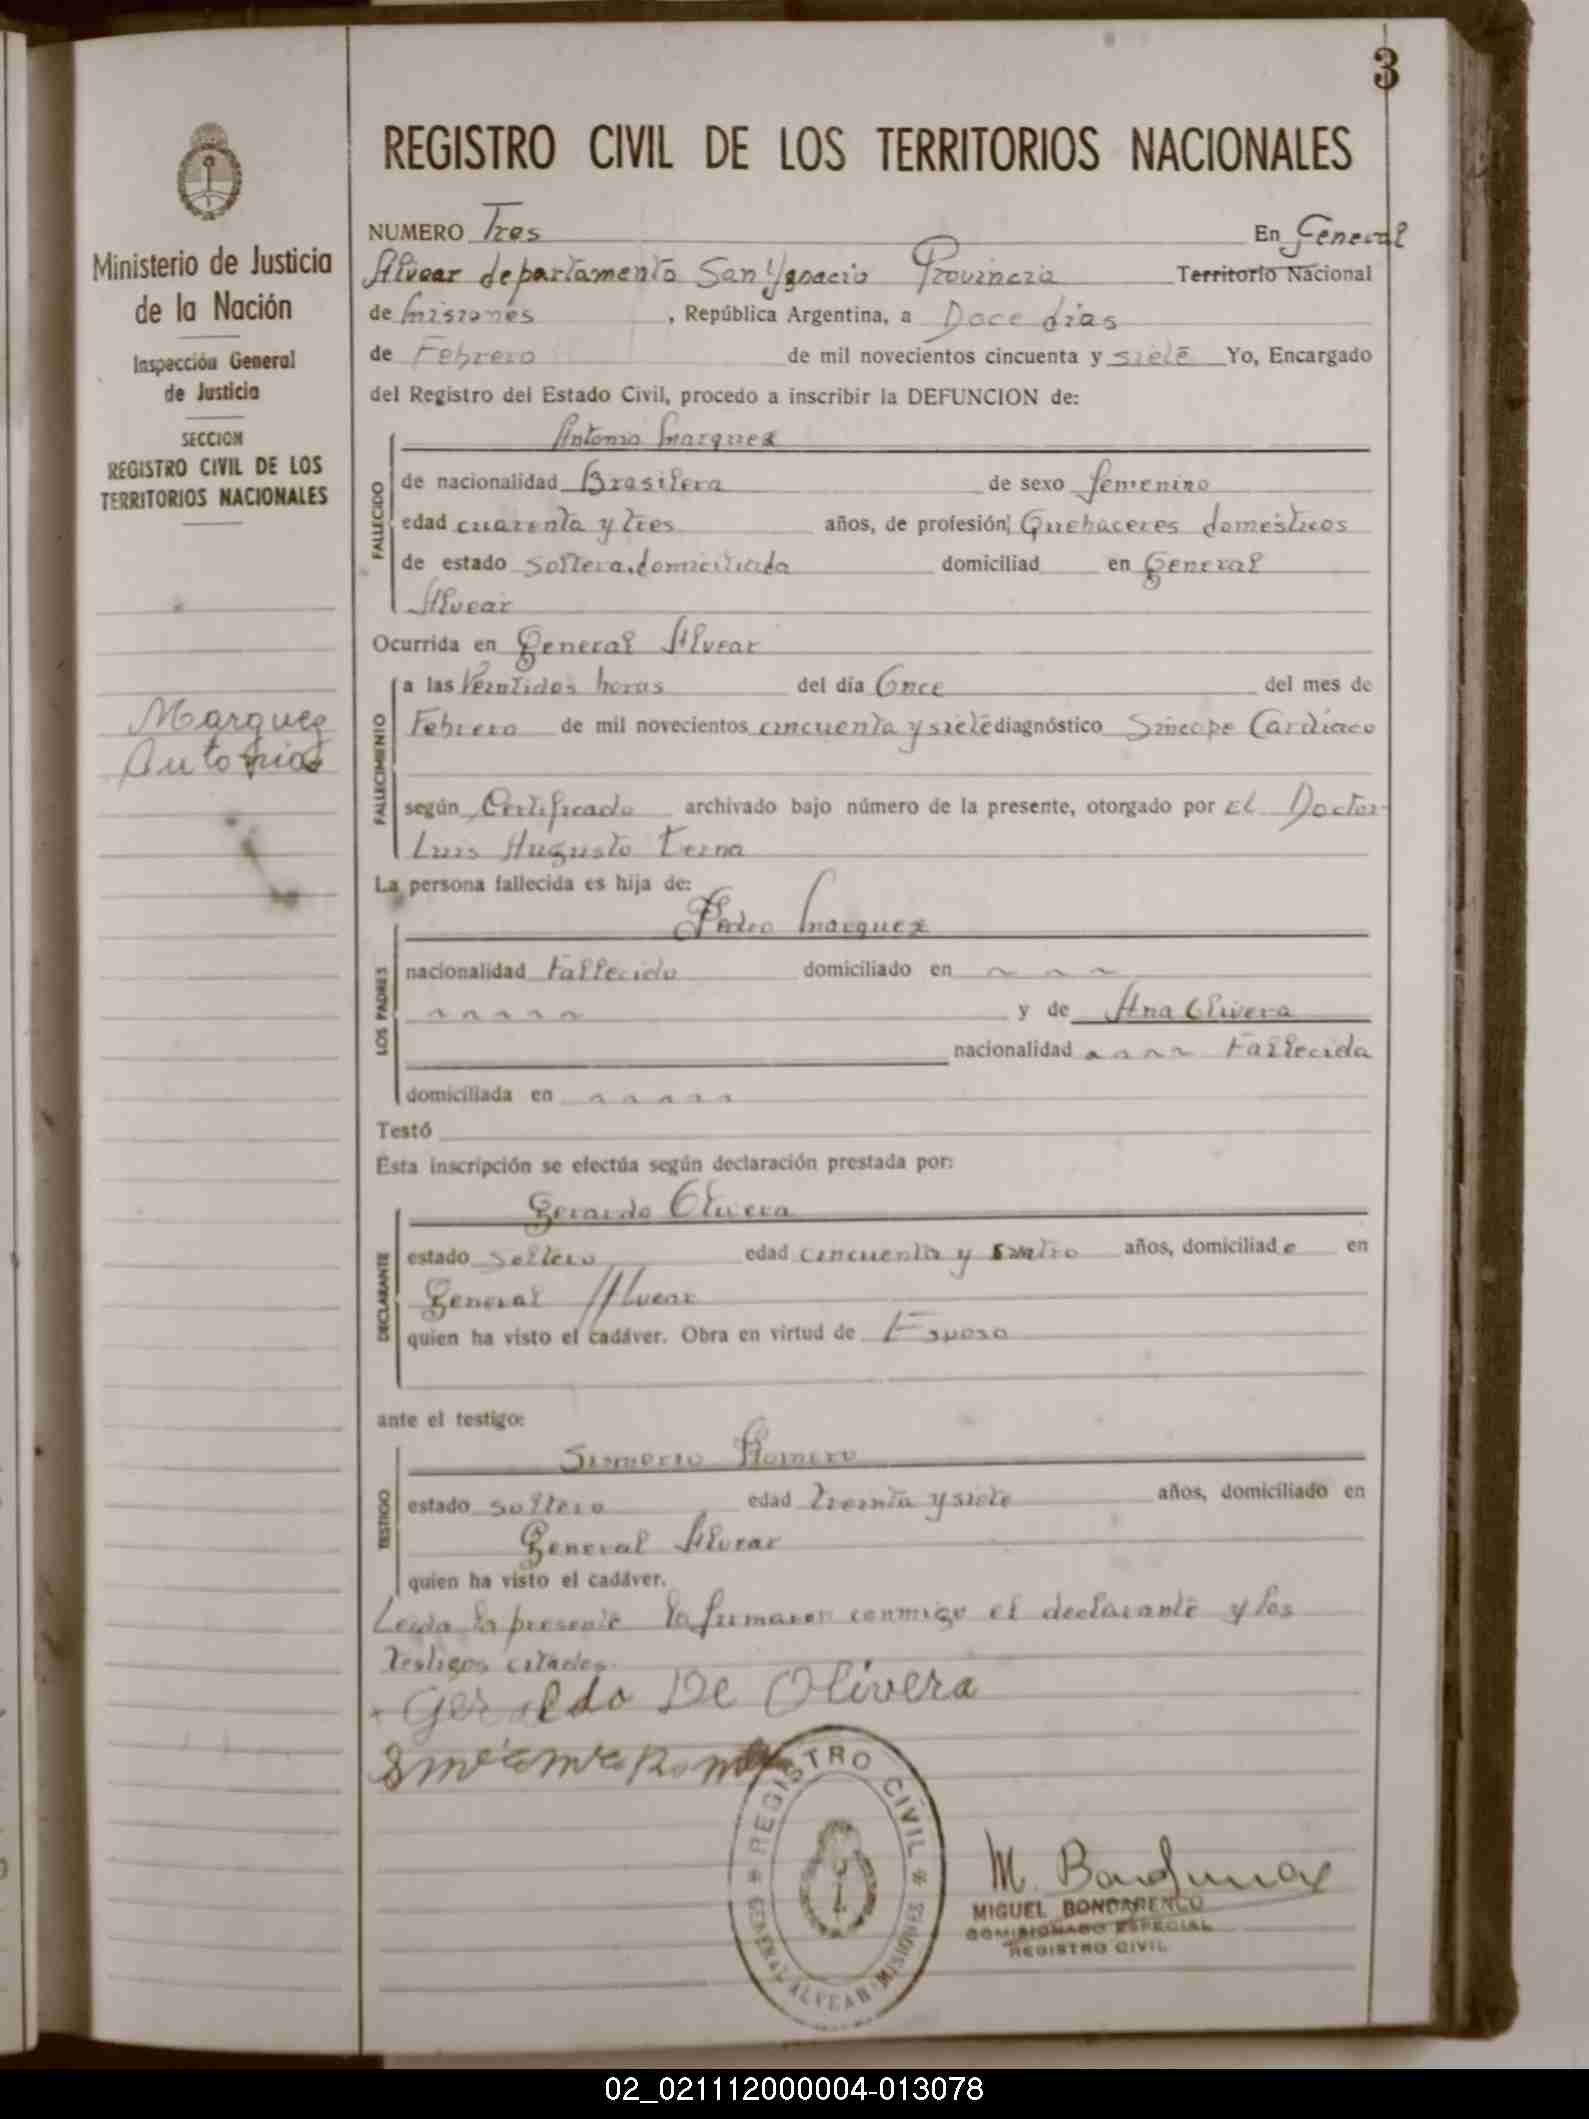 3
REGISTRO CIVIL DE LOS TERRITORIOS NACIONALES
Ministerio de Justicia
de la Nación
Inspección General
de Justicia
SECCION
REGISTRO CIVIL DE LOS
TERRITORIOS NACIONALES
Marquez
Antonia
NUMERO Tres En General
Alvear departamento San Ygnacio Provincia Territorio Nacional
de Misiones , República Argentina, a Doce dias
de Febrero de mil novecientos cincuenta y siete Yo, Encargado
del Registro del Estado Civil, procedo a inscribir la DEFUNCION de:
FALLECIDO
Antonia Marquez
de nacionalidad Brasilera de sexo femenino
edad cuarenta y tres años, de profesión Quehaceres domésticos
de estado soltera.domiciliada domiciliad en General
Alvear
Ocurrida en General Alvear
FALLECIMIENTO
a las Veintidos horas del día Once del mes de
Febrero de mil novecientos cincuenta y siete diagnóstico Síncope Cardíaco
según Certificado archivado bajo número de la presente, otorgado por el Doctor
Luis Augusto Terna
La persona fallecida es hija de:
LOS PADRES
Pedro Marquez
nacionalidad Fallecido domiciliado en
y de Ana Olivera
nacionalidad Fallecida
domiciliada en
Testó
Esta inscripción se efectúa según declaración prestada por:
DECLARANTE
Gerardo Olivera
estado soltero edad cincuenta y cuatro años, domiciliado en
General Alvear
quien ha visto el cadáver. Obra en virtud de Esposo
ante el testigo:
TESTIGO
Romero
estado soltero edad treinta y siete años, domiciliado en
General Alvear
quien ha visto el cadáver.
Leida la presente la firmaron conmigo el declarante y los
testigos citados.
Geraldo De Olivera
REGISTRO CIVIL
GENERAL ALVEAR MISIONES
M. Bondarenco
MIGUEL BONDARENCO
COMISIONADO ESPECIAL
REGISTRO CIVIL
02_021112000004-013078